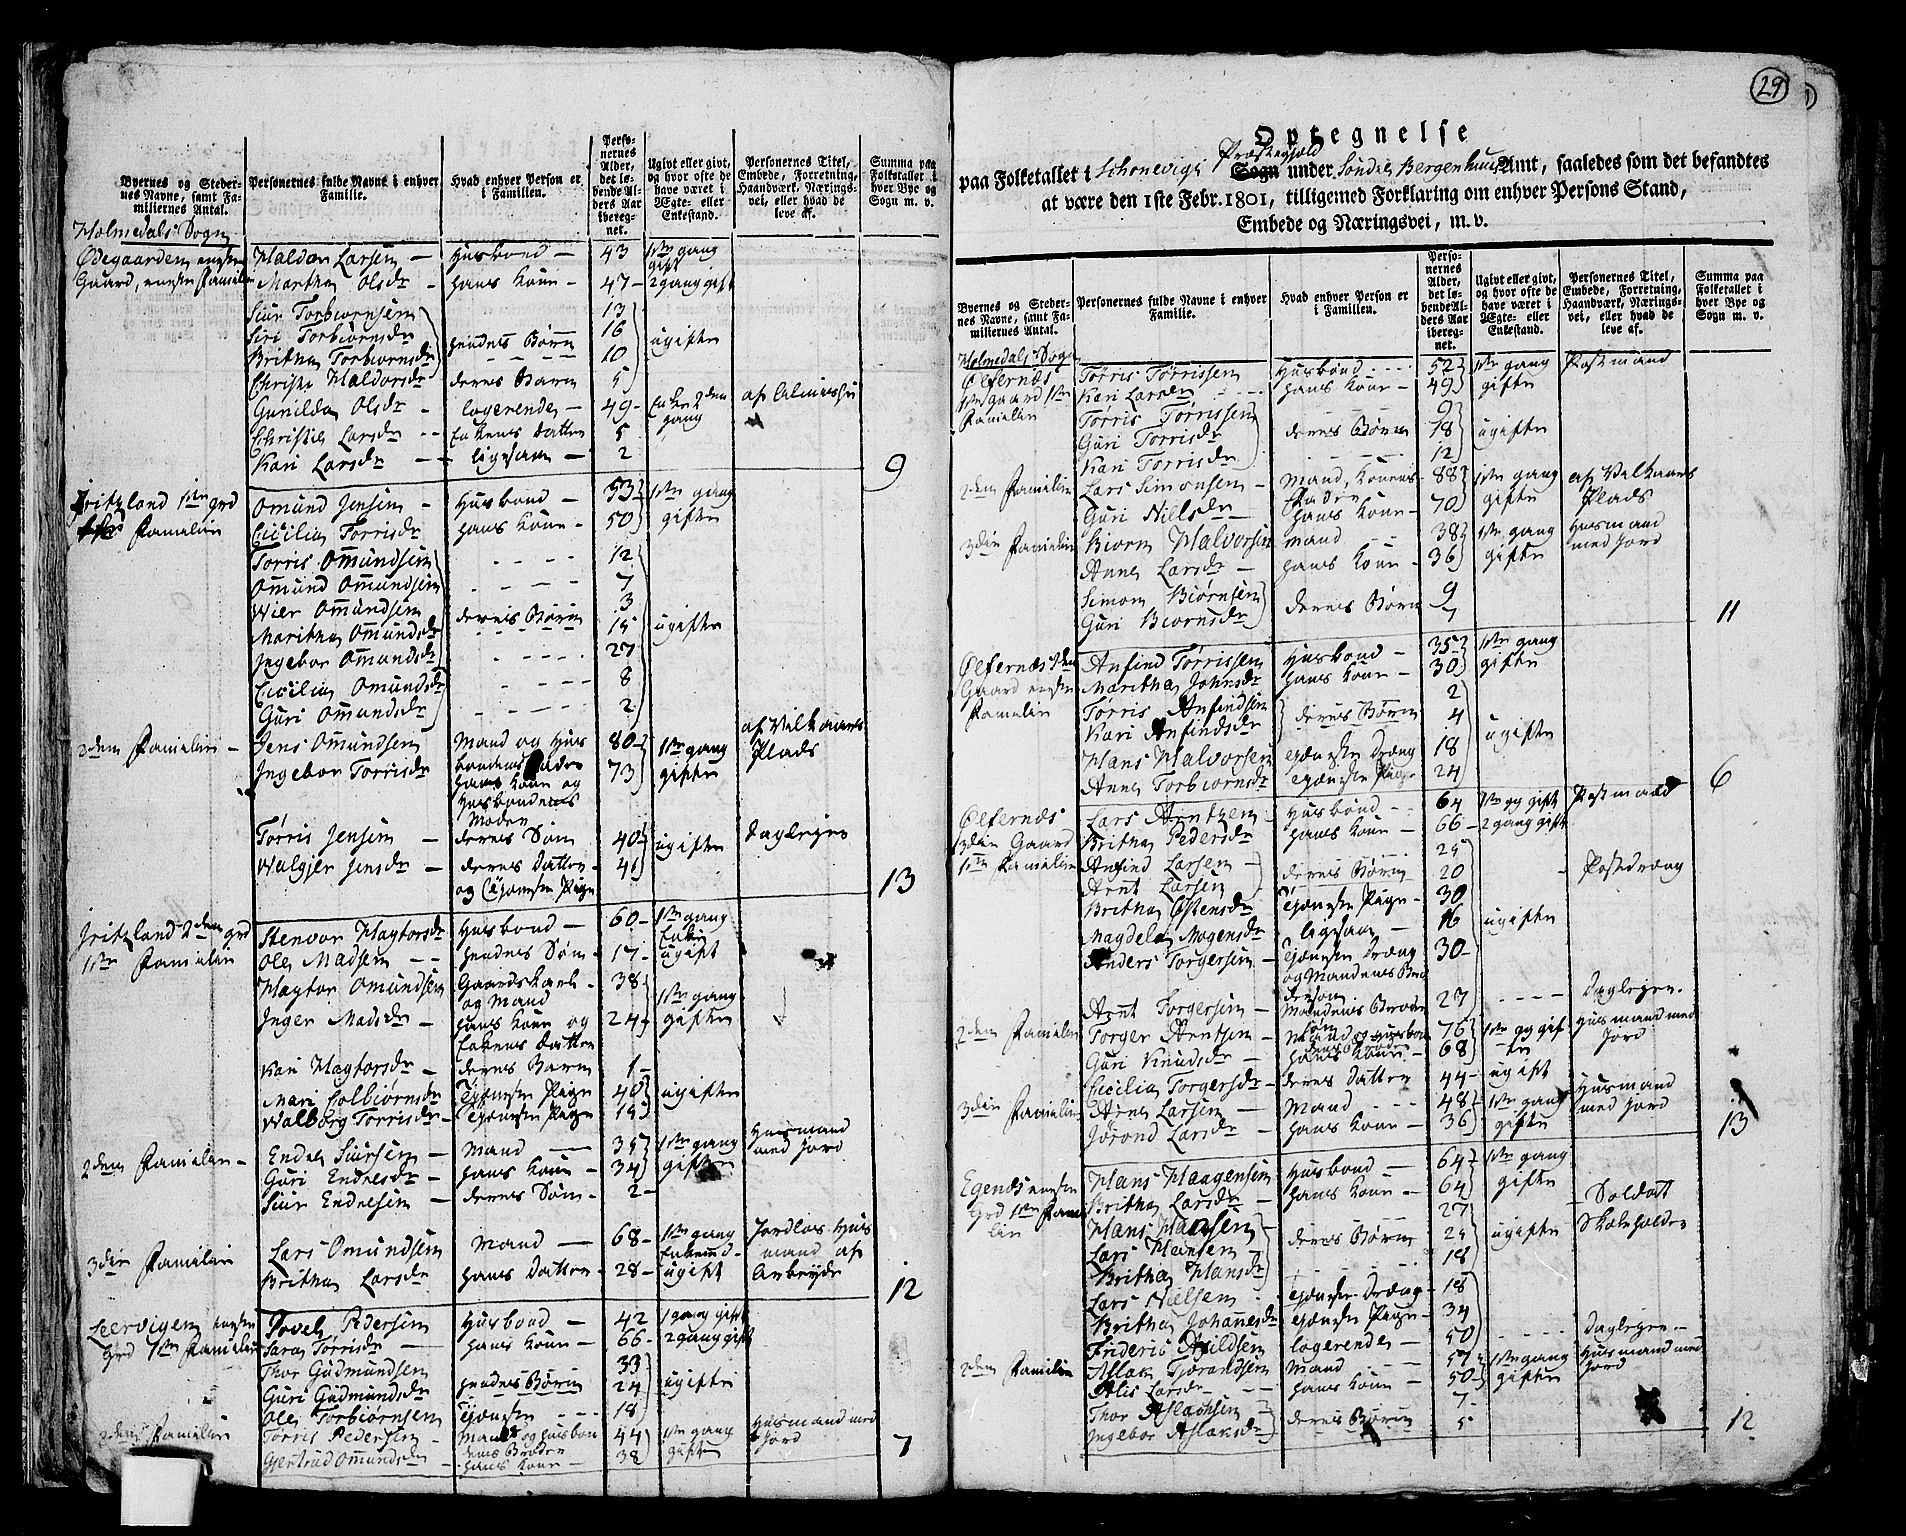 Byernes og Stedernes Navne, samt Familiernes Antal.
Personernes fulde Navne i enhver Familie.
Hvad enhver Person er i Familien.
Personernes Alder, det løbende Alders Aar iberegnet.
Ugivt eller givt, og hvor ofte de have været i Ægte- eller Enkestand.
Personernes Titel, Embede, Forretning, Haandværk, Næringsvei, eller hvad de leve af.
Summa paa Folketallet i hver Bye og Sogn m. v.
Holmedals Sogn
Ødegaarden eneste Haldor Larsen — Husbond — 43 1ste gang gift
Gaard, eneste Familie Martha Olsdr hans Kone 47 2 gang gift
Siur Torbiørnsen 13
Siri Torbiørnsdr hendes Børn 16 ugifte
Britha Torbiørnsdr 10
Christi Haldorsdr deres Barn 5
Gunilda Olsdr logerende — 49 Enke 2den gang af Almisse
Christi Larsdr Enkens Datter 5
Kari Larsdr ligesaa — 2
9
Fritzland 1ste grd Omund Jensen Husbond — 53 1ste gang
Familie Cicilia Torrisdr hans Kone 50 gifte
Torris Omundsen 12
Omund Omundsen 7
Wier Omundsen 3
Maritha Omundsdr deres Børn 15 ugifte
Ingebor Omundsdr 27
Cicilia Omundsdr 8
Guri Omundsdr 2
2den Familie — Jens Omundsen Mand og Husbondens Fader 80 1ste gang af Vilkaars
Ingebor Torrisdr hans Kone og Husbondens Moder 73 gifte Plads
Tørris Jensen — deres Søn 40 ugifte Dagleyer
Walgjer Jensdr — deres Datter og Tjeneste Pige 41
13
Fritzland 2den grd Stenvor Hagtorsdr Husbond — 60 1ste gang Enke
1ste Familie Ole Madsen — hendes Søn 17 ugift
Hagtor Omundsen Gaards Karl og Mand 38 1ste gang
Inger Madsdr — hans Kone og Enkens Datter 24 gifte
Kari Hagtorsdr — deres Barn 1
Mari Colbiørnsdr Tjeneste Pige 40 ugifte
Walborg Torrisdr Tjeneste Pige 19
2den Familie — Endre Siursen Mand — 35 1ste gang Husmand
Guri Endresdr hans Kone 34 gifte med Jord
Siur Endresen deres Søn 2
3die Familie Lars Omundsen Mand — 68 1ste gang Enkemd Jordløs Husmand af
Britha Larsdr hans Datter 28 ugift Arbeyde
12
Leervigen eneste Povel Pedersen Husbond — 42 1 gang gift
Grd 1ste Familie Sara Torrisdr hans Kone 66 2 gang gift
Thor Gudmundsen hendes Børn 33 ugifte
Guri Gudmundsdr 24
Ole Torbiørnsen tjeneste 18
2den Familie Torris Pedersen Mand og Husbondens Broder 44 1ste gang Husmand med
Gjertrud Omundsdr hans Kone 38 gifte Jord
7
29
Optegnelse
paa Folketallet i Schonevigs Præstegjeld Sogn under Søndre Bergenhuus Amt, saaledes som det befandtes
at være den 1ste Febr. 1801, tilligemed Forklaring om enhver Persons Stand,
Embede og Næringsvei, m. v.
Byernes og Stedernes Navne, samt Familiernes Antal.
Personernes fulde Navne i enhver Familie.
Hvad enhver Person er i Familien.
Personernes Alder, det løbende Alders Aar iberegnet.
Ugivt eller givt, og hvor ofte de have været i Ægte- eller Enkestand.
Personernes Titel, Embede, Forretning, Haandværk, Næringsvei, eller hvad de leve af.
Summa paa Folketallet i hver Bye og Sogn m. v.
Holmedals Sogn
Ølfernæs Tørris Tørrissen Husbond 52 1ste gang Postmand
1ste gaard 1ste Kari Larsdr hans Kone 49 gifte
Familie Tørris Tørrissen 9
Guri Torrisdr deres Børn 18 ugifte
Kari Torrisdr 12
2den Familie Lars Simonsen Mand, Konens Fader 88 1ste gang af Vilkaars
Guri Nielsdr hans Kone 70 gifte Plads
3die Familie Biørn Halvorsen Mand 38 1ste gang Husmand
Anne Larsdr hans Kone 36 gifte med Jord
Simon Biørnsen deres Børn 9
Guri Biørnsdr 7
11
Ølfernæs 2den Anfind Tørrissen Husbond — 35 1ste gang
Gaard eneste Maritha Johnsdr hans Kone 30 gifte
Familie Torris Anfindsen deres Børn 2
Kari Anfindsdr 4 ugifte
Hans Halvorsen tjeneste Dreng 18
Anne Torbiørnsdr tjeneste Pige 24
6
Ølfernæs Lars Arntzen Husbond 64 1ste gg gift Postmand
3die Gaard Britha Pedersdr hans Kone 66 2 gang gift
1ste Familie Anfind Larsen deres Børn 25
Arnt Larsen 20 Postdreng
Britha Østensdr Tjeneste Pige 30
Magdela Mogensdr ligesaa 16 ugifte
Anders Torgersen Tjeneste Dreng og Mandens Brodersøn 30
Arnt Torgersen Mandens Broder søn 27 Dagleyer
2den Familie Torger Arntsen Mand og Husbondens Broder 76 1ste gg gif Husmand med
Guri Knudsdr hans Kone 68 te Jord
Cecilia Torgersdr deres Datter 44 ugift
3die Familie Arne Larsen Mand 48 1ste gang Husmand
Jørond Larsdr hans Kone 36 gifte med Jord
13
Egenæs eneste Hans Haagensen Husbond — 64 1ste gang
Grd 1ste Fami Britha Larsdr hans Kone 64 gifte
lie Hans Hansen 27 Soldat
Lars Hansen deres Børn 25 ugifte Skoleholder
Britha Hansdr 18
Lars Nielsen tjeneste Dreng 18
Britha Johannesdr tjeneste Pige 34
Frideric Arildsen logerende 50 Dagleyer
2den Familie Aslak Tjerandsen Mand 57 1ste gang Husmand med
Alis Larsdr hans Kone 50 gifte Jord
Thor Aslachsen deres Børn 7
Ingebor Aslaksdr 5
12